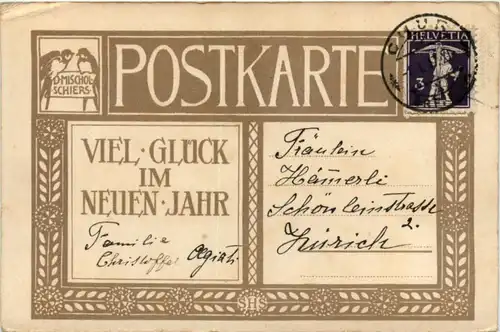 D. MISCHOL
SCHIERS
POSTKARTE
CHUR
HELVETIA
3
VIEL · GLÜCK
IM
NEUEN · JAHR
Familie
Christoffel
Fräulein
Hämerli
Schönleinstrasse
2.
Zürich